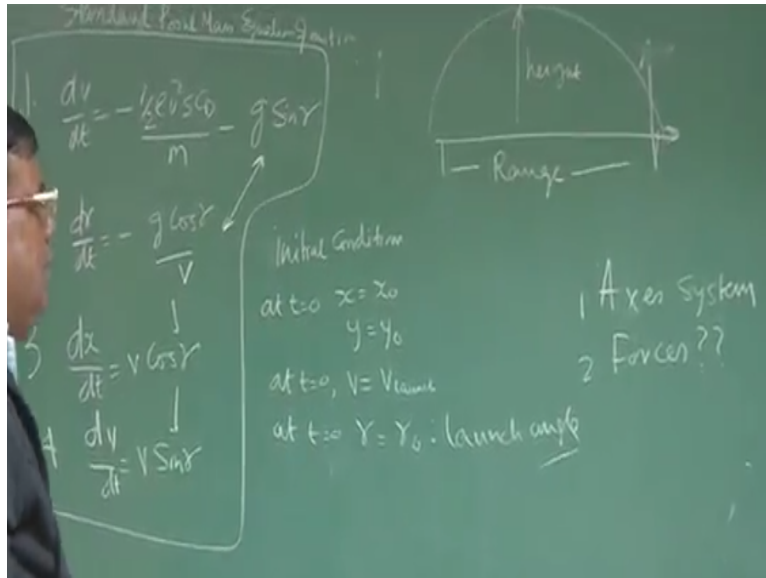 Standard Point Mass Equation
1. dv/dt = - ½ρv²SCD/m - g Sinγ
dγ/dt = - g Cosγ/V
3 dx/dt = V Cosγ
4 dy/dt = V Sinγ
Initial Condition
at t=0 x = x₀
y = y₀
at t=0, V = VLaunch
at t=0 γ = γ₀ : launch angle
height
Range
1 Axes System
2 Forces??